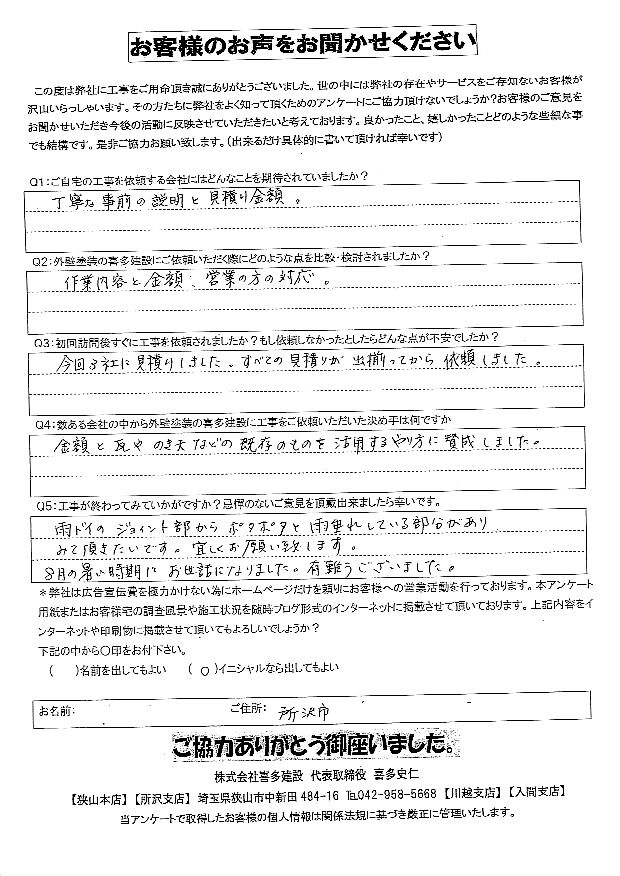 お客様のお声をお聞かせください
この度は弊社に工事をご用命頂き誠にありがとうございました。世の中には弊社の存在やサービスをご存知ないお客様が
沢山いらっしゃいます。その方たちに弊社をよく知って頂くためのアンケートにご協力頂けないでしょうか?お客様のご意見を
お聞かせいただき今後の活動に反映させていただきたいと考えております。良かったこと、嬉しかったことどのような些細な事
でも結構です。是非ご協力お願い致します。(出来るだけ具体的に書いて頂ければ幸いです)
Q1:ご自宅の工事を依頼する会社にはどんなことを期待されていましたか?
丁寧な事前の説明と見積り金額。
Q2:外壁塗装の喜多建設にご依頼いただく際にどのような点を比較・検討されましたか?
作業内容と金額、営業の方の対応。
Q3:初回訪問後すぐに工事を依頼されましたか?もし依頼しなかったとしたらどんな点が不安でしたか?
今回3社に見積りしました。すべての見積りが出揃ってから依頼しました。
Q4:数ある会社の中から外壁塗装の喜多建設に工事をご依頼いただいた決め手は何ですか
金額と瓦やのき天などの既存のものを活用するやり方に賛成しました。
Q5:工事が終わってみていかがですか?忌憚のないご意見を頂戴出来ましたら幸いです。
雨ドイのジョイント部からポタポタと雨垂れしている部分があり
みて頂きたいです。宜しくお願い致します。
8月の暑い時期にお世話になりました。有難うございました。
*弊社は広告宣伝費を極力かけない為にホームページだけを頼りにお客様への営業活動を行っております。本アンケート
用紙またはお客様宅の調査風景や施工状況を随時ブログ形式のインターネットに掲載させて頂いております。上記内容をイ
ンターネットや印刷物に掲載させて頂いてもよろしいでしょうか?
下記の中から〇印をお付下さい。
( )名前を出してもよい (○)イニシャルなら出してもよい
お名前: ご住所: 所沢市
ご協力ありがとう御座いました。
株式会社喜多建設 代表取締役 喜多史仁
【狭山本店】【所沢支店】 埼玉県狭山市中新田484-16 ℡042-958-5668 【川越支店】【入間支店】
当アンケートで取得したお客様の個人情報は関係法規に基づき厳正に管理いたします。